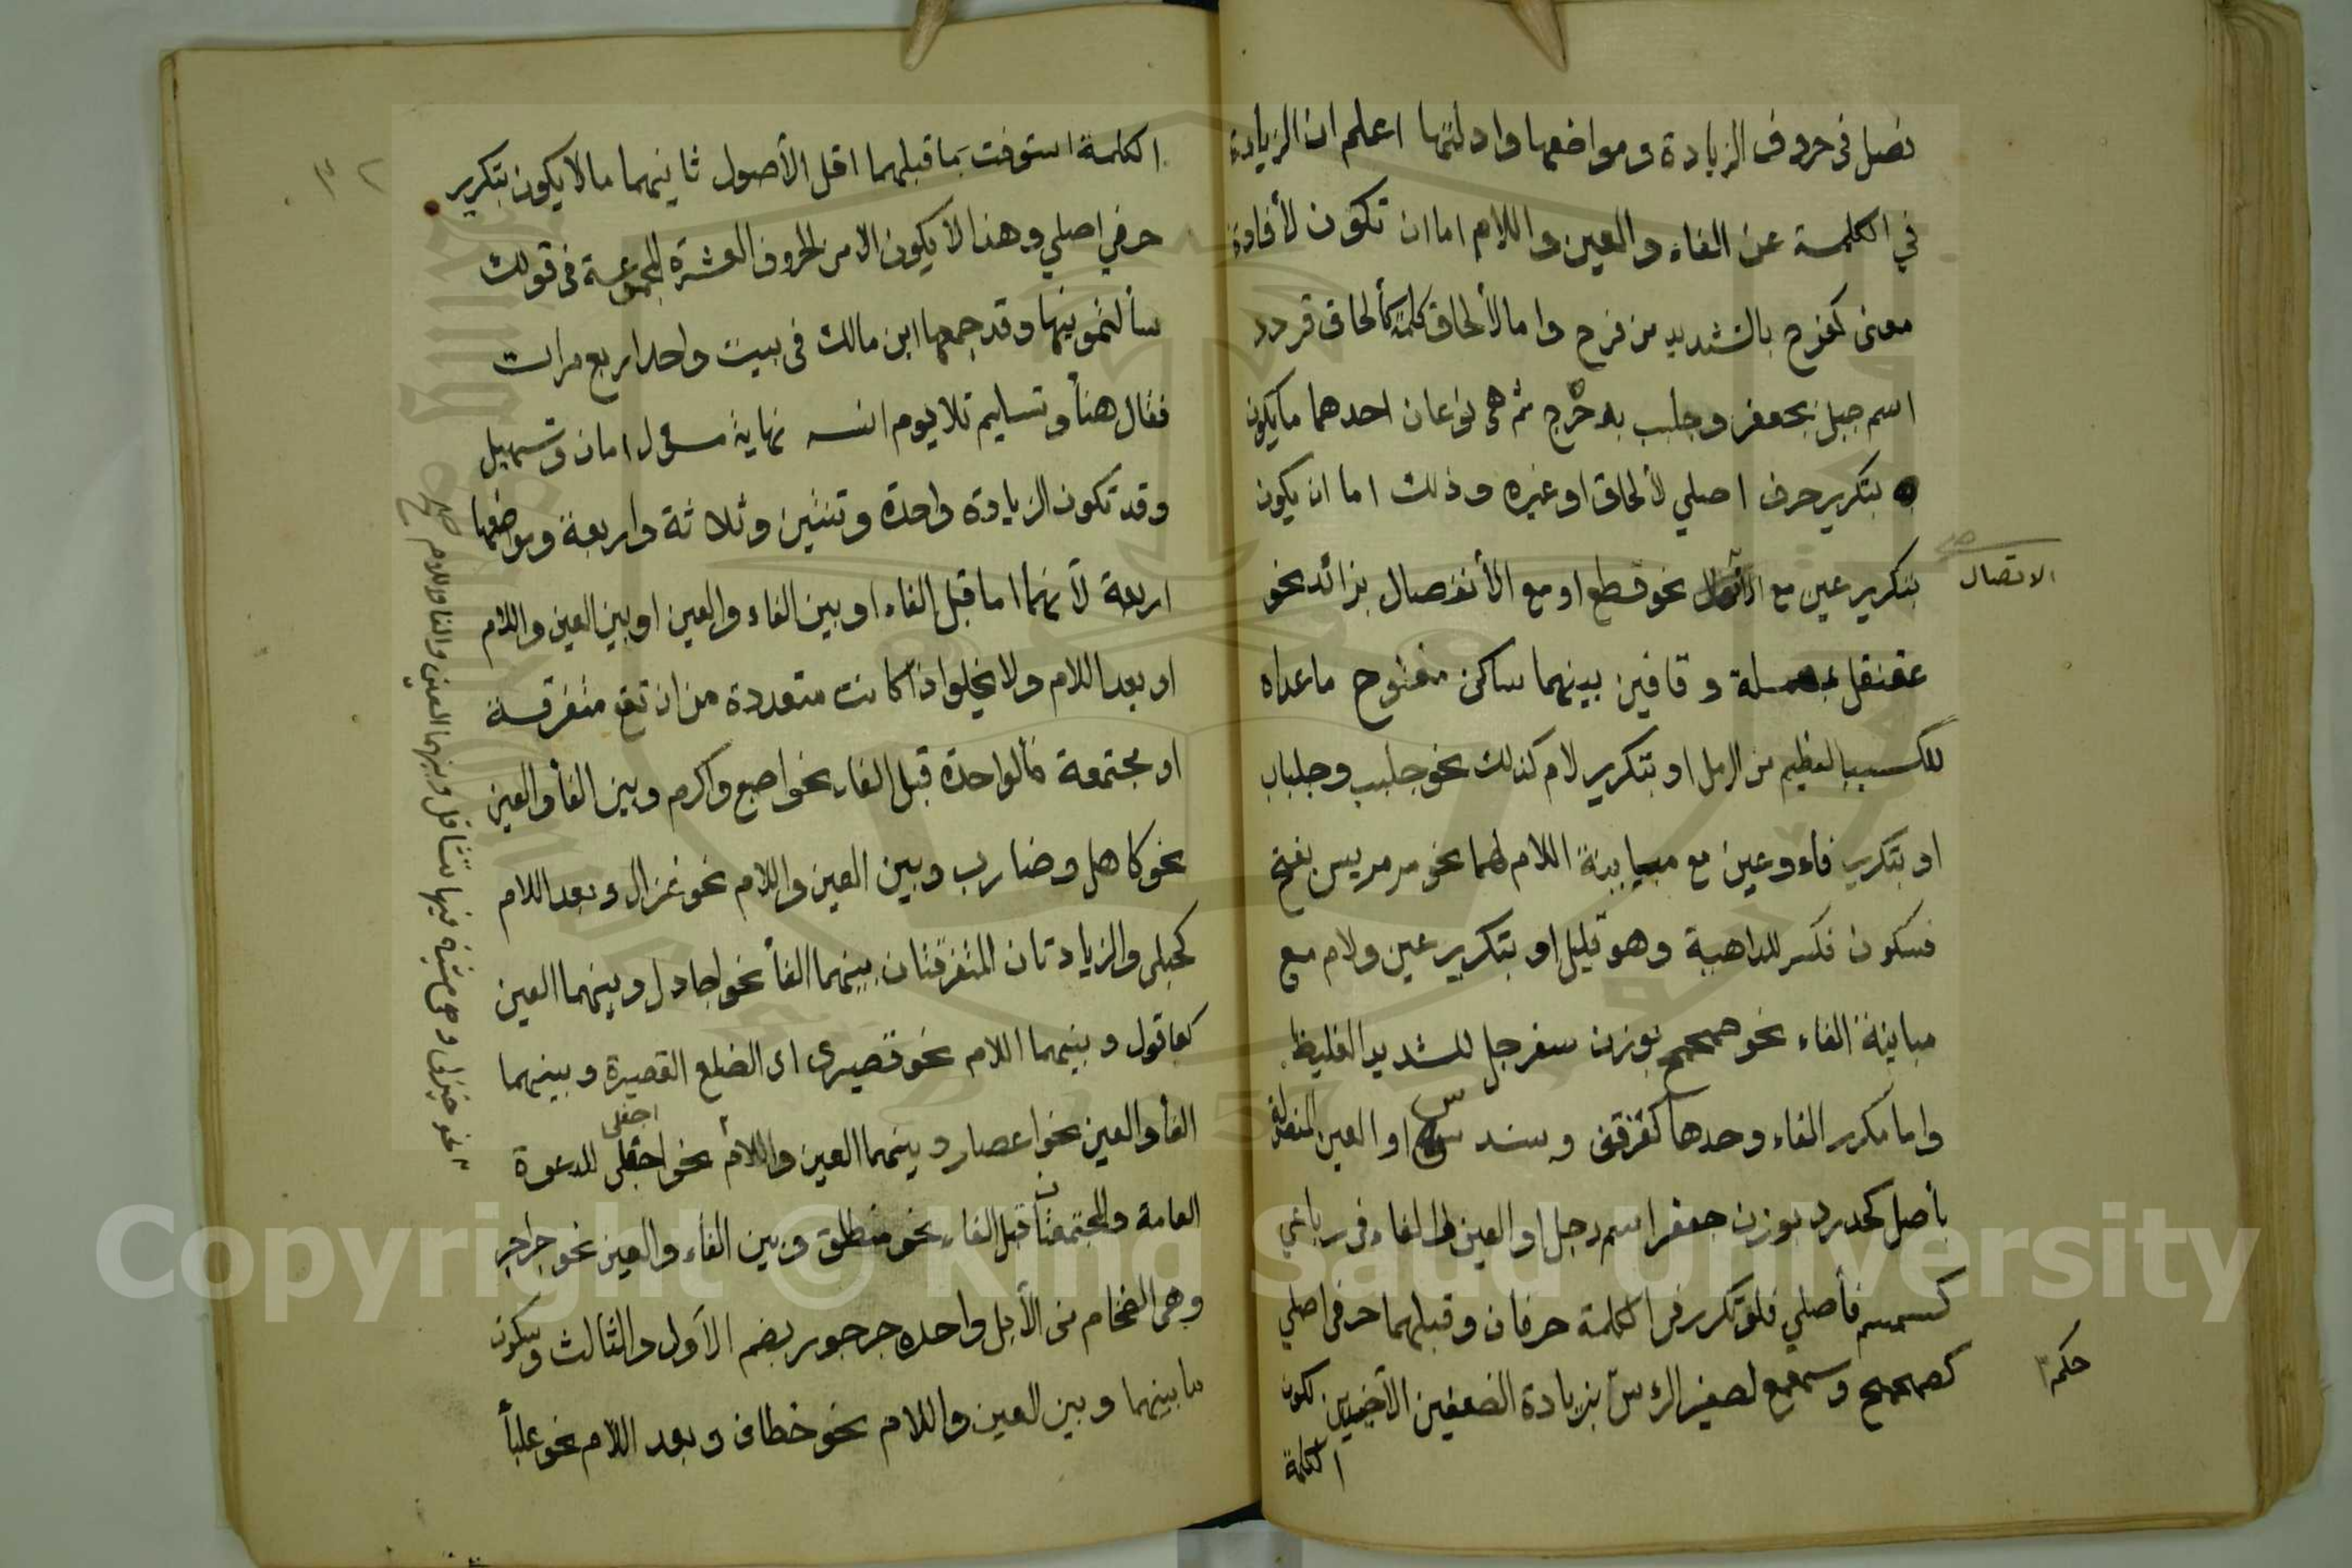 فصل فى حروف الزيادة ومواضعها وادلتها اعلم ان الزيادة
في الكلمة عن الفاء والعين واللام اما ان تكون لأفادة
معنى كفرح بالتشديد من فرح واما لألحاق كلمة كألحاق قردد
اسم جبل بجعفر وجلبب بدحرج ثم هى نوعان احدهما مايكون
بتكرير حرف اصلي لألحاق او غيره وذلك اما ان يكون
بتكرير عين مع الأتصال نحو قطع او مع الأنفصال بزائد نحو
الاتصال صح
عقنقل بمهملة وقافين بينهما ساكن مفتوح ماعداه
للكسيب العظيم من الرمل او بتكرير لام كذلك نحو جلبب وجلباب
او بتكرير فاء وعين مع مباينة اللام لهما نحو مرمريس بفتح
فسكون فكسر للداهية وهو قليل او بتكرير عين ولام مع
مباينة الفاء نحو صمحمح بوزن سفرجل للشديد الغليظ
واما مكرر الفاء وحدها كقرقف وسندس او العين المفصولة
بأصل كحدرد بوزن جعفر اسم رجل او العين والفاء فى رباعي
كسمسم فأصلي فلو تكرر فى الكلمة حرفان وقبلهما حرف اصلي
حكم
كصمحمح وسمعمع لصغير الرأس بزيادة الضعفين الأخيرين لكون
الكلمة
الكلمة استوفت بما قبلهما اقل الأصول ثانيهما مالا يكون بتكرير
حرف اصلي وهذا لا يكون الا من الحروف العشرة المجموعة فى قولك
سألتمونيها وقد جمعها ابن مالك فى بيت واحد اربع مرات
فقال هنأ وتسليم تلا يوم انسه نهاية مسؤل امان وتسهيل
وقد تكون الزيادة واحدة وتنتين وثلاثة واربعة ومواضعها
اربعة لأنها اما قبل الفاء او بين الفاء والعين او بين العين واللام
او بعد اللام ولا يخلو اذا كانت متعددة من ان تقع متفرقة
او مجتمعة فالواحدة قبل الفاء نحو اصبع واكرم وبين الفأ والعين
نحو كاهل وضارب وبين العين واللام نحو غزال وبعد اللام
كحبلى والزيادتان المتفرقتان بينهما الفأ نحو اجادل وبينهما العين
كعاقول وبينهما اللام نحو قصيرى اى الضلع القصيرة وبينهما
الفأ والعين نحو اعصار وبينهما العين واللام نحو اجفلى للدعوة
اجفلى
العامة والمجتمعتان قبل الفاء نحو منطلق وبين الفاء والعين نحو جراجر
وهى الضخام من الأبل واحده جرجور بضم الأول والثالث وسكون
ما بينهما وبين العين واللام نحو خطاف وبعد اللام نحو علبأ
نحو خيزلى وهى مشية فيها تثاقل وبينهما العين والفا واللام صح
Copyright © King Saud University